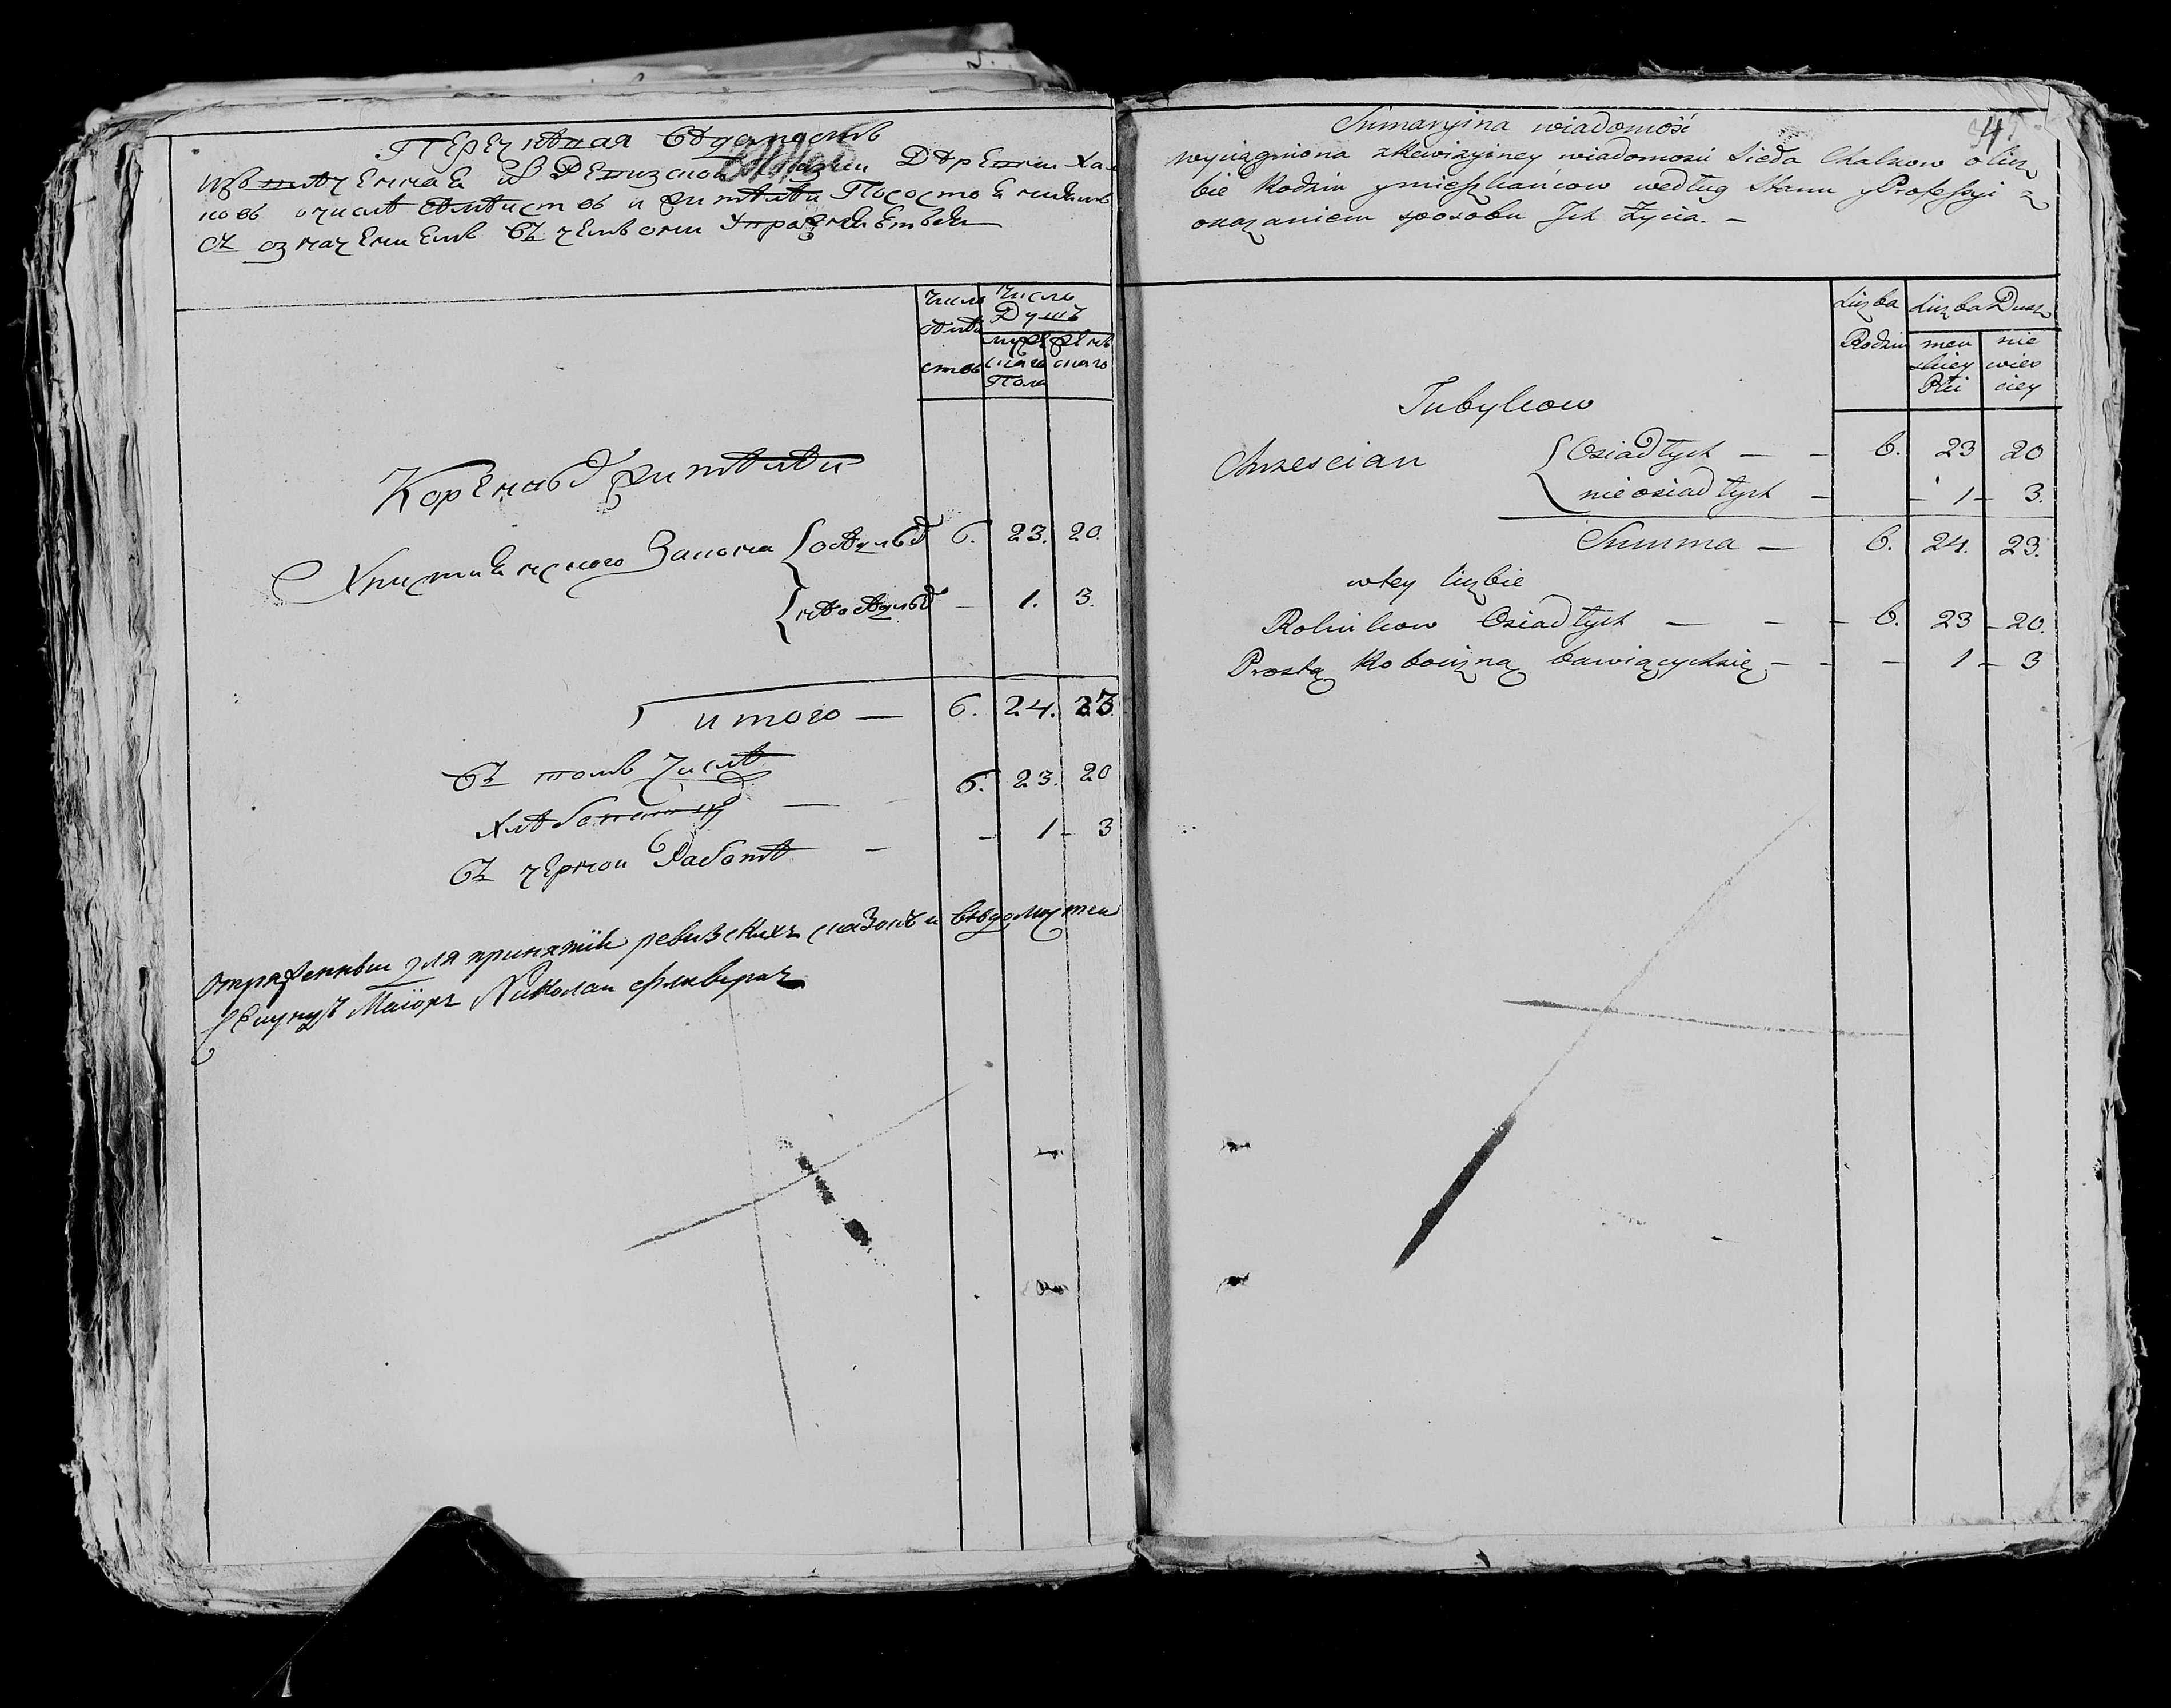 Перечневая ведомость
извлеченная изъ Ревизской Скаски Деревни Хал
ковъ о числе семействъ и жителей По состояниямъ
съ означениемъ въ чемъ они упражняются
Число семействъ
Число Душъ
мужескаго Пола
женскаго
Коренныхъ жителей
Христианского Закона { оседлыхъ 6. 23. 20.
{ неоседлыхъ – 1. 3.
итого — 6. 24. 23.
Въ томъ числе
хлебопашцовъ — 6. 23. 20
Въ черной Работе – – 1 – 3
Отряженный для принятия ревизскихъ сказокъ и ведомостей
Секундъ Маиоръ Николай
Summaryina wiadomość
wyciągniona z Rewizyiney wiadomości Sioła Chalkow o licz
bie Rodzin y mieszkańcow według Stanu y Professyi z
okazaniem sposobu Ich Życia. –
Liczba Rodzin
Liczba Dusz
męskiey Płci
niewiesciey
Tubylcow
Chrzescian { Osiadłych — – 6. 23 20
{ nieosiadłych – – 1 – 3.
Summa — 6. 24. 23.
w tey liczbie
Rolnikow Osiadłych — – – 6. 23 – 20.
Prostą Robocizną bawiących się – – – 1 – 3